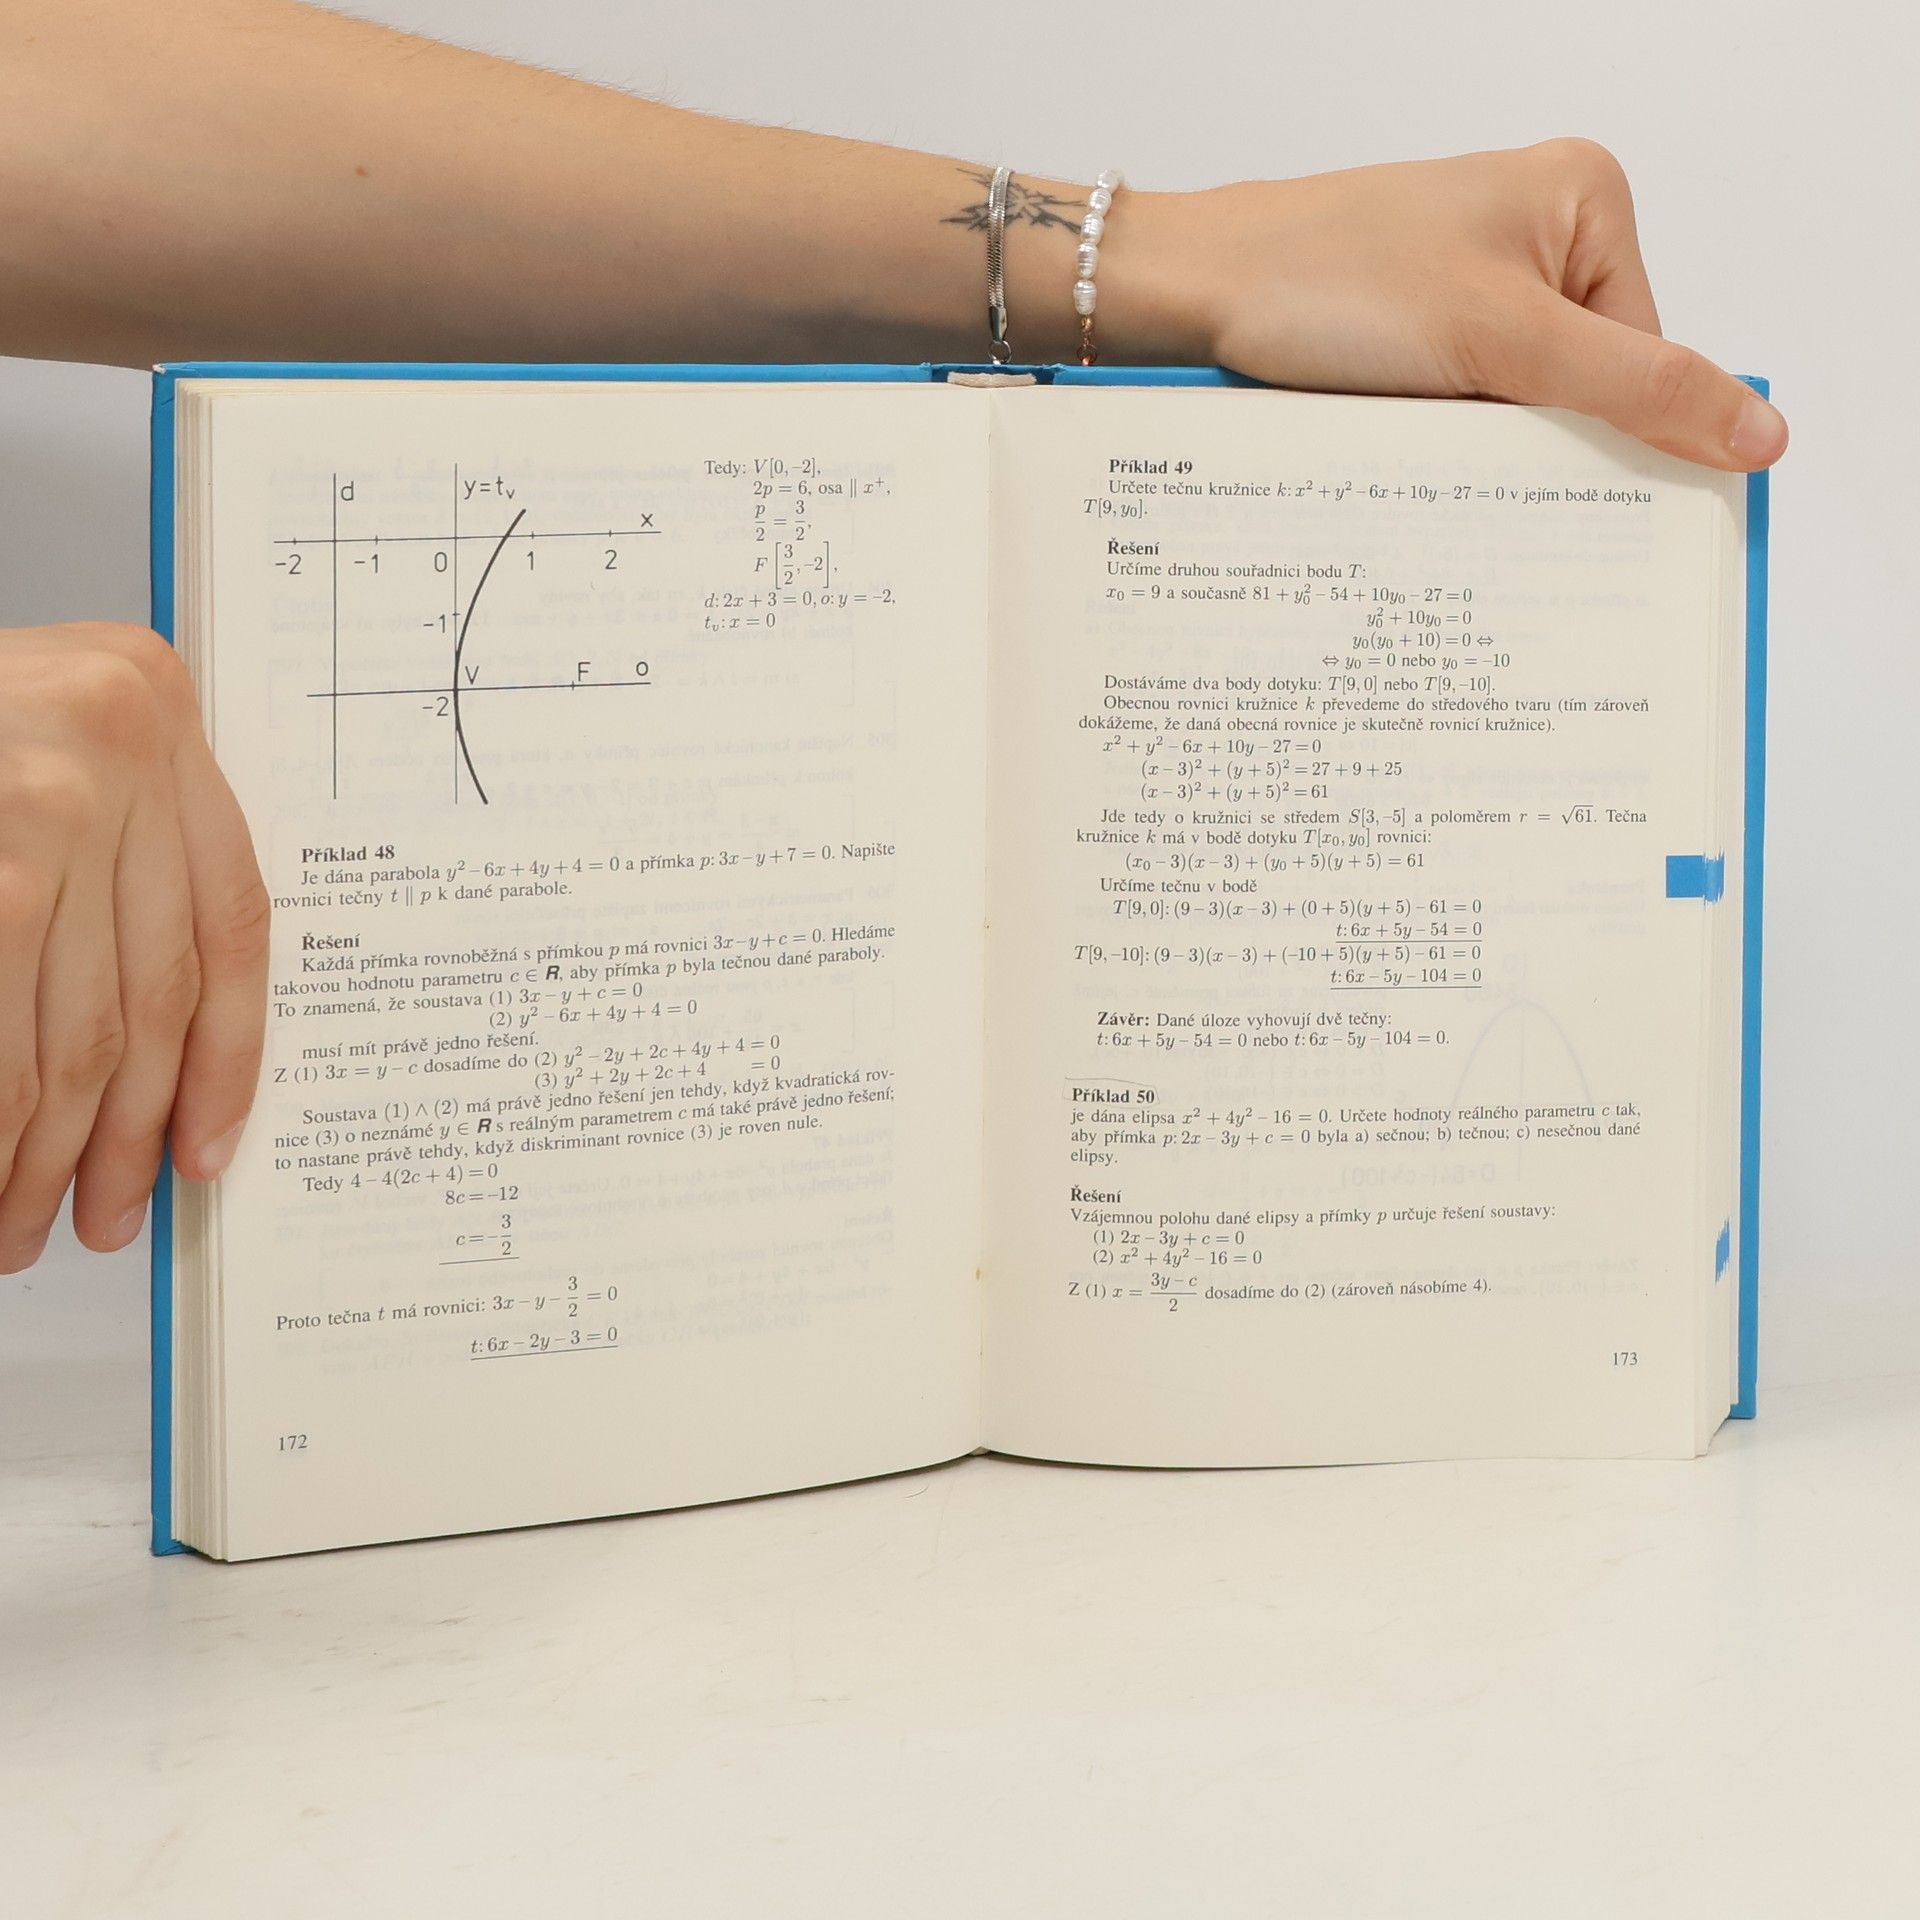 d
y=tᵥ
x
-2 -1 0 1 2
-1
V F o
-2
Tedy: V[0,–2],
2p = 6, osa ∥ x⁺,
p/2 = 3/2,
F [3/2, –2],
d: 2x + 3 = 0, o: y = –2,
tᵥ: x = 0
Příklad 48
Je dána parabola y² – 6x + 4y + 4 = 0 a přímka p: 3x – y + 7 = 0. Napište
rovnici tečny t ∥ p k dané parabole.
Řešení
Každá přímka rovnoběžná s přímkou p má rovnici 3x – y + c = 0. Hledáme
takovou hodnotu parametru c ∈ R, aby přímka p byla tečnou dané paraboly.
To znamená, že soustava (1) 3x – y + c = 0
(2) y² – 6x + 4y + 4 = 0
musí mít právě jedno řešení.
Z (1) 3x = y – c dosadíme do (2) y² – 2y + 2c + 4y + 4 = 0
(3) y² + 2y + 2c + 4 = 0
Soustava (1) ∧ (2) má právě jedno řešení jen tehdy, když kvadratická rov-
nice (3) o neznámé y ∈ R s reálným parametrem c má také právě jedno řešení;
to nastane právě tehdy, když diskriminant rovnice (3) je roven nule.
Tedy 4 – 4(2c + 4) = 0
8c = –12
c = –3/2
Proto tečna t má rovnici: 3x – y – 3/2 = 0
t: 6x – 2y – 3 = 0
172
Příklad 49
Určete tečnu kružnice k: x² + y² – 6x + 10y – 27 = 0 v jejím bodě dotyku
T[9, y₀].
Řešení
Určíme druhou souřadnici bodu T:
x₀ = 9 a současně 81 + y₀² – 54 + 10y₀ – 27 = 0
y₀² + 10y₀ = 0
y₀(y₀ + 10) = 0 ⇔
⇔ y₀ = 0 nebo y₀ = –10
Dostáváme dva body dotyku: T[9, 0] nebo T[9, –10].
Obecnou rovnici kružnice k převedeme do středového tvaru (tím zároveň
dokážeme, že daná obecná rovnice je skutečně rovnicí kružnice).
x² + y² – 6x + 10y – 27 = 0
(x – 3)² + (y + 5)² = 27 + 9 + 25
(x – 3)² + (y + 5)² = 61
Jde tedy o kružnici se středem S[3, –5] a poloměrem r = √61. Tečna
kružnice k má v bodě dotyku T[x₀, y₀] rovnici:
(x₀ – 3)(x – 3) + (y₀ + 5)(y + 5) = 61
Určíme tečnu v bodě
T[9, 0]: (9 – 3)(x – 3) + (0 + 5)(y + 5) – 61 = 0
t: 6x + 5y – 54 = 0
T[9, –10]: (9 – 3)(x – 3) + (–10 + 5)(y + 5) – 61 = 0
t: 6x – 5y – 104 = 0
Závěr: Dané úloze vyhovují dvě tečny:
t: 6x + 5y – 54 = 0 nebo t: 6x – 5y – 104 = 0.
Příklad 50
je dána elipsa x² + 4y² – 16 = 0. Určete hodnoty reálného parametru c tak,
aby přímka p: 2x – 3y + c = 0 byla a) sečnou; b) tečnou; c) nesečnou dané
elipsy.
Řešení
Vzájemnou polohu dané elipsy a přímky p určuje řešení soustavy:
(1) 2x – 3y + c = 0
(2) x² + 4y² – 16 = 0
Z (1) x = (3y – c)/2 dosadíme do (2) (zároveň násobíme 4).
173